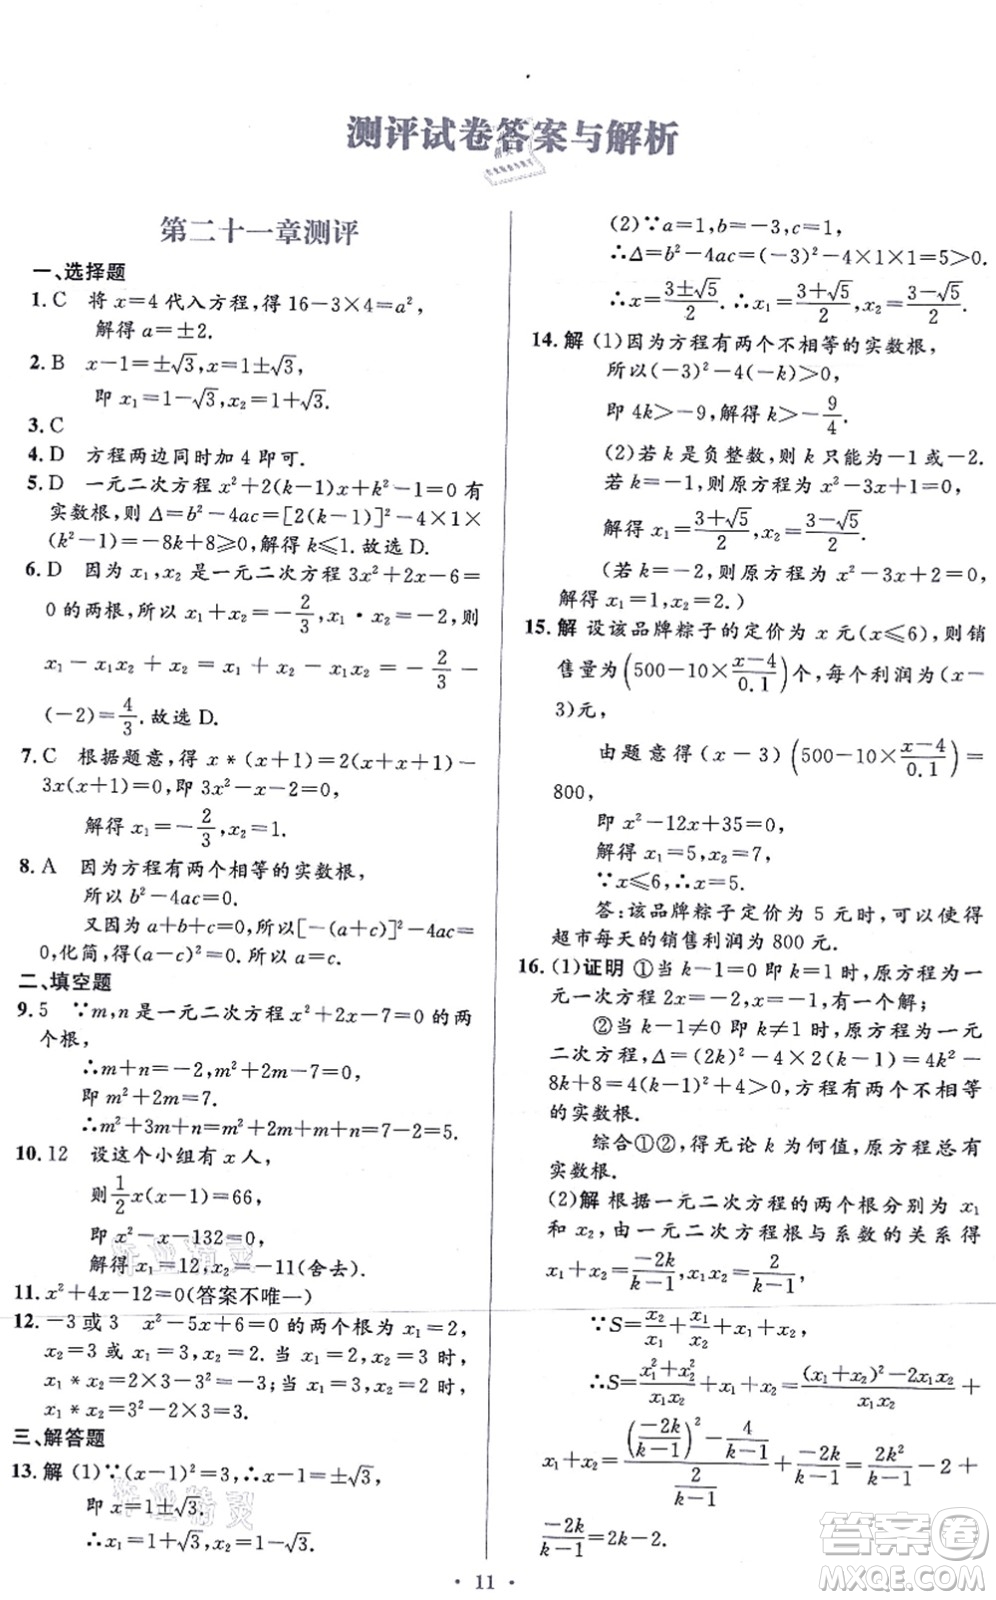 测评试卷答案与解析
第二十一章测评
一、选择题
1. C 将 x=4 代入方程,得 16-3×4=a²,
解得 a=±2.
2. B x-1=±√3,x=1±√3,
即 x₁=1-√3,x₂=1+√3.
3. C
4. D 方程两边同时加 4 即可.
5. D 一元二次方程 x²+2(k-1)x+k²-1=0 有
实数根,则 Δ=b²-4ac=[2(k-1)]²-4×1×
(k²-1)=-8k+8≥0,解得 k≤1.故选 D.
6. D 因为 x₁,x₂ 是一元二次方程 3x²+2x-6=
0 的两根,所以 x₁+x₂=-2/3,x₁·x₂=-2,则
x₁-x₁x₂+x₂=x₁+x₂-x₁x₂=-2/3-
(-2)=4/3.故选 D.
7. C 根据题意,得 x*(x+1)=2(x+x+1)-
3x(x+1)=0,即 3x²-x-2=0,
解得 x₁=-2/3,x₂=1.
8. A 因为方程有两个相等的实数根,
所以 b²-4ac=0.
又因为 a+b+c=0,所以[-(a+c)]²-4ac=
0,化简,得(a-c)²=0,所以 a=c.
二、填空题
9. 5 ∵m,n 是一元二次方程 x²+2x-7=0 的两
个根,
∴m+n=-2,m²+2m-7=0,
即 m²+2m=7.
∴m²+3m+n=m²+2m+m+n=7-2=5.
10. 12 设这个小组有 x 人,
则1/2x(x-1)=66,
即 x²-x-132=0,
解得 x₁=12,x₂=-11(舍去).
11. x²+4x-12=0(答案不唯一)
12. -3 或 3 x²-5x+6=0 的两个根为 x₁=2,
x₂=3 或 x₁=3,x₂=2.当 x₁=2,x₂=3 时,
x₁*x₂=2×3-3²=-3;当 x₁=3,x₂=2 时,
x₁*x₂=3²-2×3=3.
三、解答题
13. 解 (1)∵(x-1)²=3,∴x-1=±√3,
即 x=1±√3.
∴x₁=1+√3,x₂=1-√3.
(2)∵a=1,b=-3,c=1,
∴Δ=b²-4ac=(-3)²-4×1×1=5>0.
∴x=(3±√5)/2.∴x₁=(3+√5)/2,x₂=(3-√5)/2.
14. 解 (1)因为方程有两个不相等的实数根,
所以(-3)²-4(-k)>0,
即 4k>-9,解得 k>-9/4.
(2)若 k 是负整数,k 只能为-1或-2.
如果 k=-1,则原方程为 x²-3x+1=0,
解得 x₁=(3+√5)/2,x₂=(3-√5)/2.
(若 k=-2,则原方程为 x²-3x+2=0,
解得 x₁=1,x₂=2.)
15. 解 设该品牌粽子的定价为 x 元(x≤6),则销
售量为(500-10×(x-4)/0.1)个,每个利润为(x-
3)元,
由题意得(x-3)(500-10×(x-4)/0.1)=
800,
即 x²-12x+35=0,
解得 x₁=5,x₂=7.
∵x≤6,∴x=5.
答:该品牌粽子定价为 5 元时,可以使得
超市每天的销售利润为 800 元.
16. (1)证明 ①当 k-1=0 即 k=1 时,原方程为一
元一次方程 2x=-2,x=-1,有一个解;
②当 k-1≠0 即 k≠1 时,原方程为一元
二次方程,Δ=(2k)²-4×2(k-1)=4k²-
8k+8=4(k-1)²+4>0,方程有两个不相等
的实数根.
综合①②,得无论 k 为何值,原方程总有
实数根.
(2)解 根据一元二次方程的两个根分别为 x₁
和 x₂,由一元二次方程根与系数的关系得
x₁+x₂=-2k/(k-1),x₁x₂=2/(k-1).
∵S=x₂/x₁+x₁/x₂+x₁+x₂,
∴S=(x₁²+x₂²)/(x₁x₂)+x₁+x₂=((x₁+x₂)²-2x₁x₂)/(x₁x₂)+
x₁+x₂=((-2k/(k-1))²-4/(k-1))/(2/(k-1))+-2k/(k-1)=2k²/(k-1)-2+
-2k/(k-1)=2k-2.
·11·
答案圈
MXQE.COM
作业精灵
作业精灵